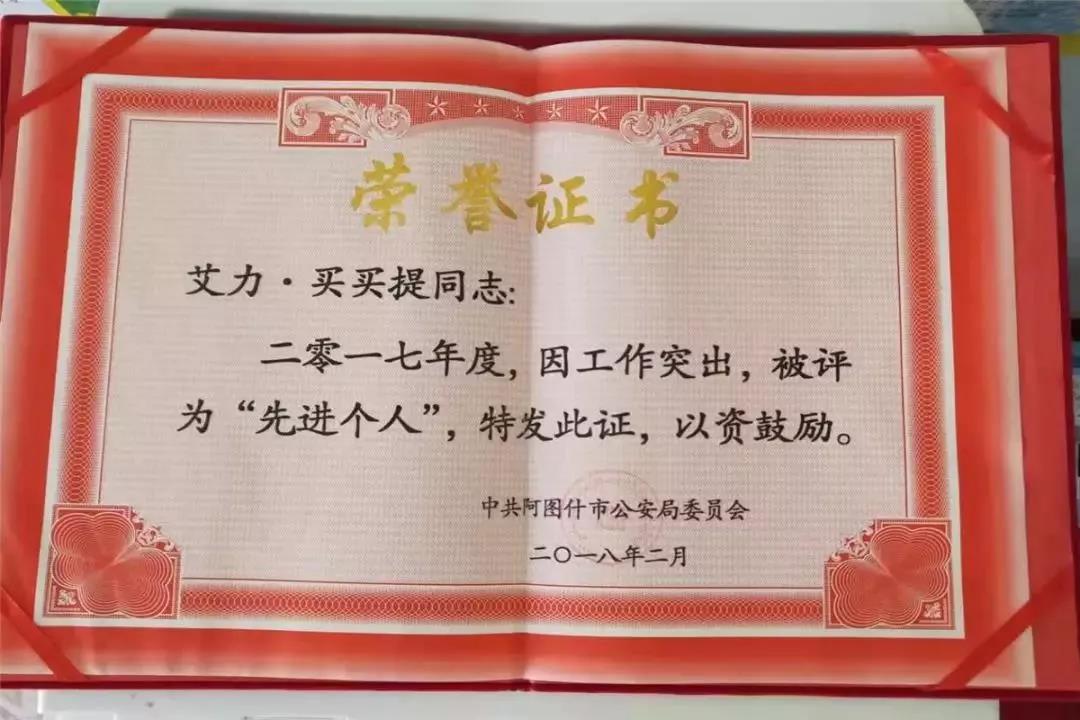 荣誉证书
艾力·买买提同志:
二零一七年度，因工作突出，被评
为“先进个人”，特发此证，以资鼓励。
中共阿图什市公安局委员会
二〇一八年二月